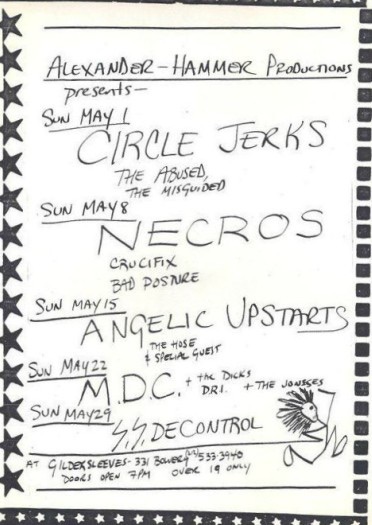 ALEXANDER-HAMMER PRODUCTIONS
presents-
SUN MAY 1
CIRCLE JERKS
THE ABUSED,
THE MISGUIDED
SUN MAY 8
NECROS
CRUCIFIX
BAD POSTURE
SUN MAY 15
ANGELIC UPSTARTS
THE HOSE
& SPECIAL GUEST
SUN MAY 22
M.D.C. + the DICKS
D.R.I. + THE JONESES
SUN MAY 29
S.S. DECONTROL
AT GILDERSLEEVES - 331 BOWERY (212) 533-3940
DOORS OPEN 7PM OVER 19 ONLY